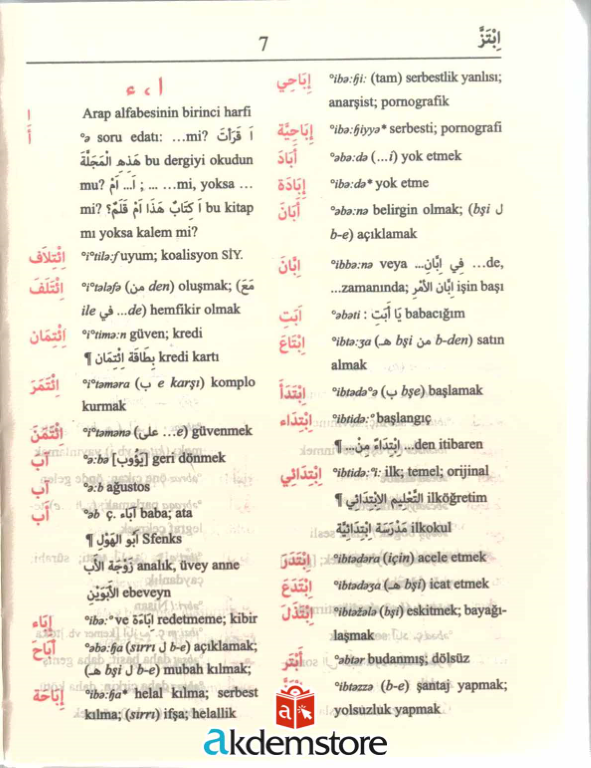 7
اِبْتَزَّ
ا ، ء
ا Arap alfabesinin birinci harfi
أَ °ə soru edatı: …mi? أَ قَرَأْتَ
هَذِهِ الْمَجَلَّةَ bu dergiyi okudun
mu? أ… أَمْ ; … …mi, yoksa …
mi? أَ كِتَابٌ هَذَا أَمْ قَلَمٌ؟ bu kitap
mı yoksa kalem mi?
اِئْتِلَاف °i°tilə:f uyum; koalisyon SİY.
اِئْتَلَفَ °i°tələfə (من den) oluşmak; (مَعَ
ile في …de) hemfikir olmak
اِئْتِمَان °i°timə:n güven; kredi
¶ بِطَاقَة اِئْتِمَان kredi kartı
اِئْتَمَرَ °i°təməra (ب e karşı) komplo
kurmak
اِئْتَمَنَ °i°təmənə (على …e) güvenmek
آبَ °ə:bə [يَؤُوب] geri dönmek
آب °ə:b ağustos
أَب °əb ç. آبَاء baba; ata
¶ أَبُو الْهَوْل Sfenks
زَوْجَة الأَب analık, üvey anne
الأَبَوَيْن ebeveyn
إِبَاء °ibə:° ve إِبَاءَة redetmeme; kibir
أَبَاحَ °əbə:ɦa (sırrı ل b-e) açıklamak;
(هـ bşi ل b-e) mubah kılmak;
إِبَاحَة °ibə:ɦa* helal kılma; serbest
kılma; (sırrı) ifşa; helallik
إِبَاحِي °ibə:ɦi: (tam) serbestlik yanlısı;
anarşist; pornografik
إِبَاحِيَّة °ibə:ɦiyyə* serbesti; pornografi
أَبَادَ °əbə:də (…i) yok etmek
إِبَادَة °ibə:də* yok etme
أَبَانَ °əbə:nə belirgin olmak; (bşi ل
b-e) açıklamak
إِبَّان °ibbə:nə veya في إِبَّانِ… …de,
…zamanında; إِبَّان الأَمْر işin başı
أَبَتِ °əbəti : يَا أَبَتِ babacığım
اِبْتَاعَ °ibtə:ʒa (هـ bşi من b-den) satın
almak
اِبْتَدَأَ °ibtədə°ə (ب bşe) başlamak
اِبْتِدَاء °ibtidə:° başlangıç
¶ اِبْتِدَاءً مِنْ… …den itibaren
اِبْتِدَائِي °ibtidə:°i: ilk; temel; orijinal
¶ التَّعْلِيم الاِبْتِدَائِي ilköğretim
مَدْرَسَة اِبْتِدَائِيَّة ilkokul
اِبْتَدَرَ °ibtədəra (için) acele etmek
اِبْتَدَعَ °ibtədəʒa (هـ bşi) icat etmek
اِبْتَذَلَ °ibtəžələ (bşi) eskitmek; bayağı-
laşmak
أَبْتَر °əbtər budanmış; dölsüz
°ibtəzzə (b-e) şantaj yapmak;
yolsuzluk yapmak
akdemstore